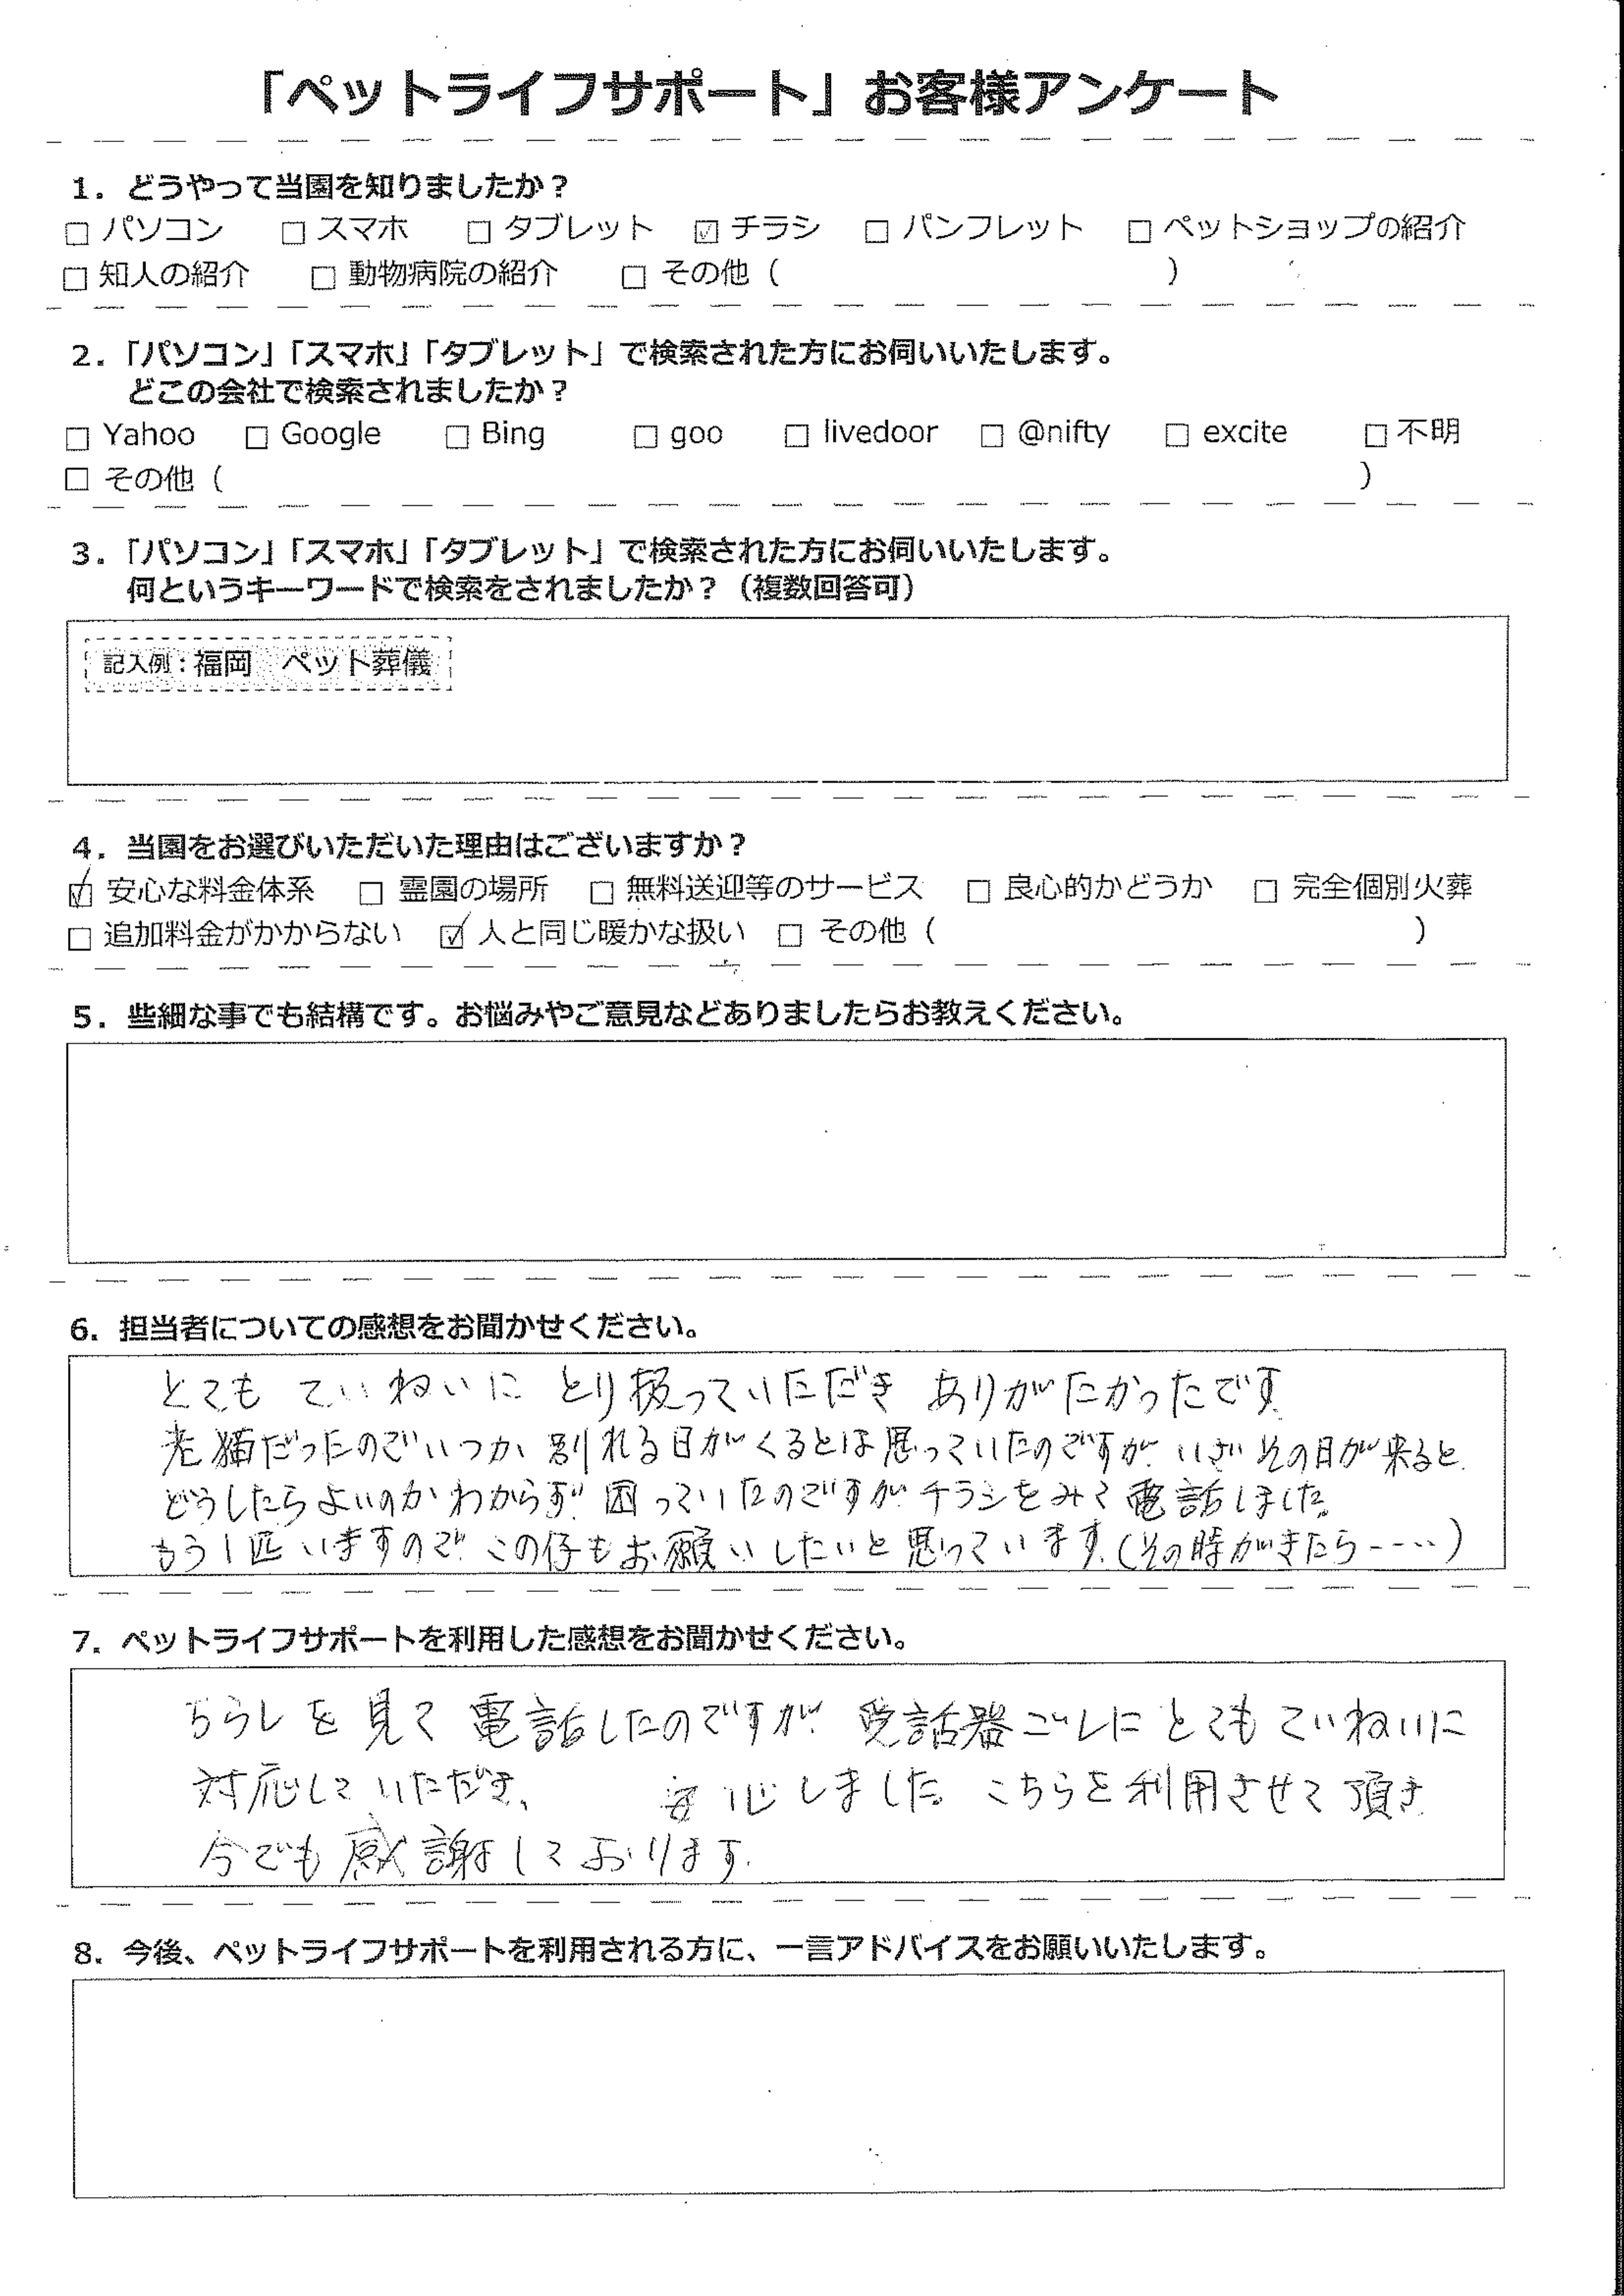 「ペットライフサポート」お客様アンケート
1．どうやって当園を知りましたか？
□ パソコン □ スマホ □ タブレット ☑ チラシ □ パンフレット □ ペットショップの紹介
□ 知人の紹介 □ 動物病院の紹介 □ その他（ ）
2．「パソコン」「スマホ」「タブレット」で検索された方にお伺いいたします。
どこの会社で検索されましたか？
□ Yahoo □ Google □ Bing □ goo □ livedoor □ @nifty □ excite □ 不明
□ その他（ ）
3．「パソコン」「スマホ」「タブレット」で検索された方にお伺いいたします。
何というキーワードで検索をされましたか？（複数回答可）
記入例：福岡　ペット葬儀
4．当園をお選びいただいた理由はございますか？
☑ 安心な料金体系 □ 霊園の場所 □ 無料送迎等のサービス □ 良心的かどうか □ 完全個別火葬
□ 追加料金がかからない ☑ 人と同じ暖かな扱い □ その他（ ）
5．些細な事でも結構です。お悩みやご意見などありましたらお教えください。
6．担当者についての感想をお聞かせください。
とても ていねいに とり扱っていただき ありがたかったです
老猫だったのでいつか 別れる日がくるとは思っていたのですが いざ その日が来ると
どうしたらよいのか わからず 困っていたのですが チラシをみて 電話しました。
もう1匹いますので この仔もお願いしたいと思っています.(その時がきたら-----)
7．ペットライフサポートを利用した感想をお聞かせください。
ちらしを見て 電話したのですが 受話器ごしにとてもていねいに
対応していただき、 安心しました。こちらを利用させて頂き
今でも感謝しております.
8．今後、ペットライフサポートを利用される方に、一言アドバイスをお願いいたします。